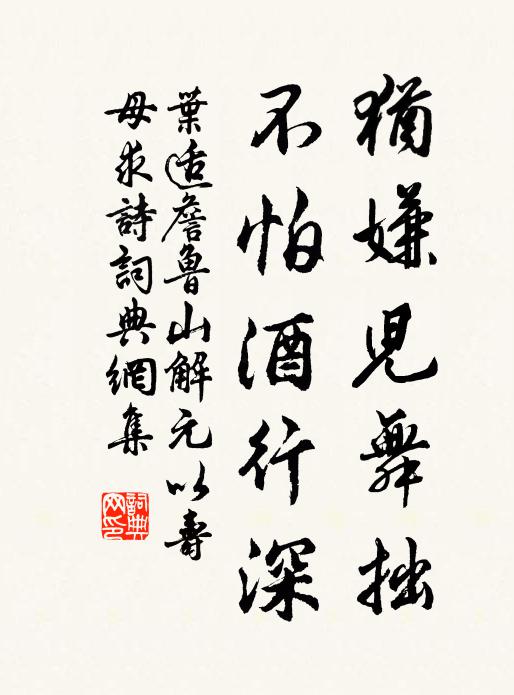 猶嫌兒舞拙
不怕酒行深
葉适詹魯山解元以壽
母求詩詞典網集
詞典網印